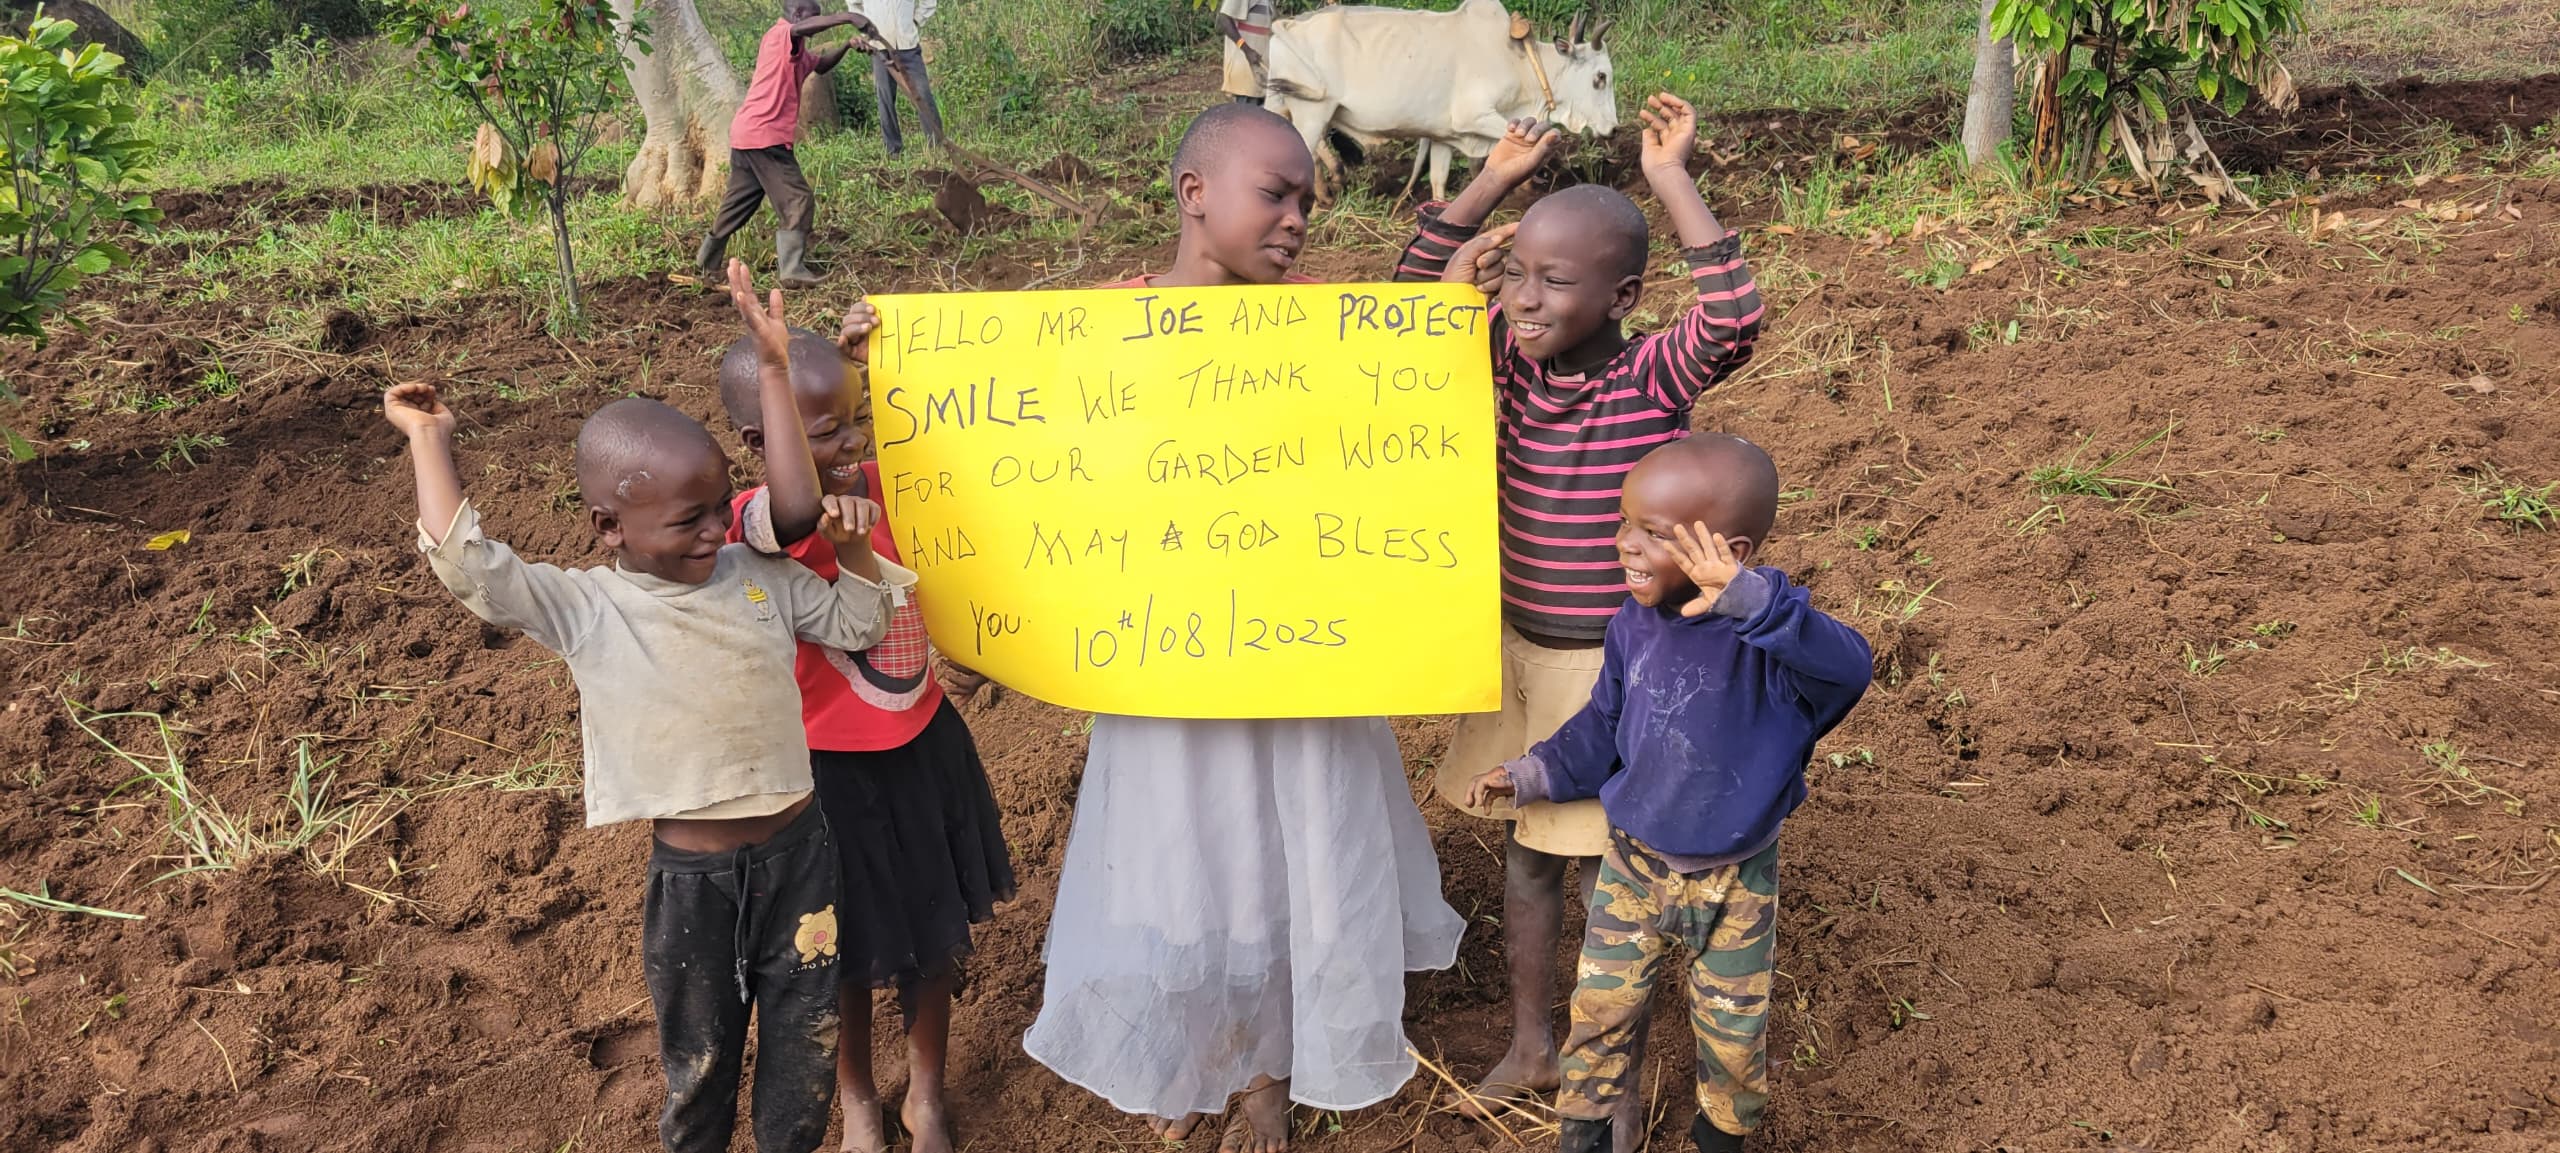 HELLO MR. JOE AND PROJECT
SMILE WE THANK YOU
FOR OUR GARDEN WORK
AND MAY A GOD BLESS
YOU. 10th/08/2025